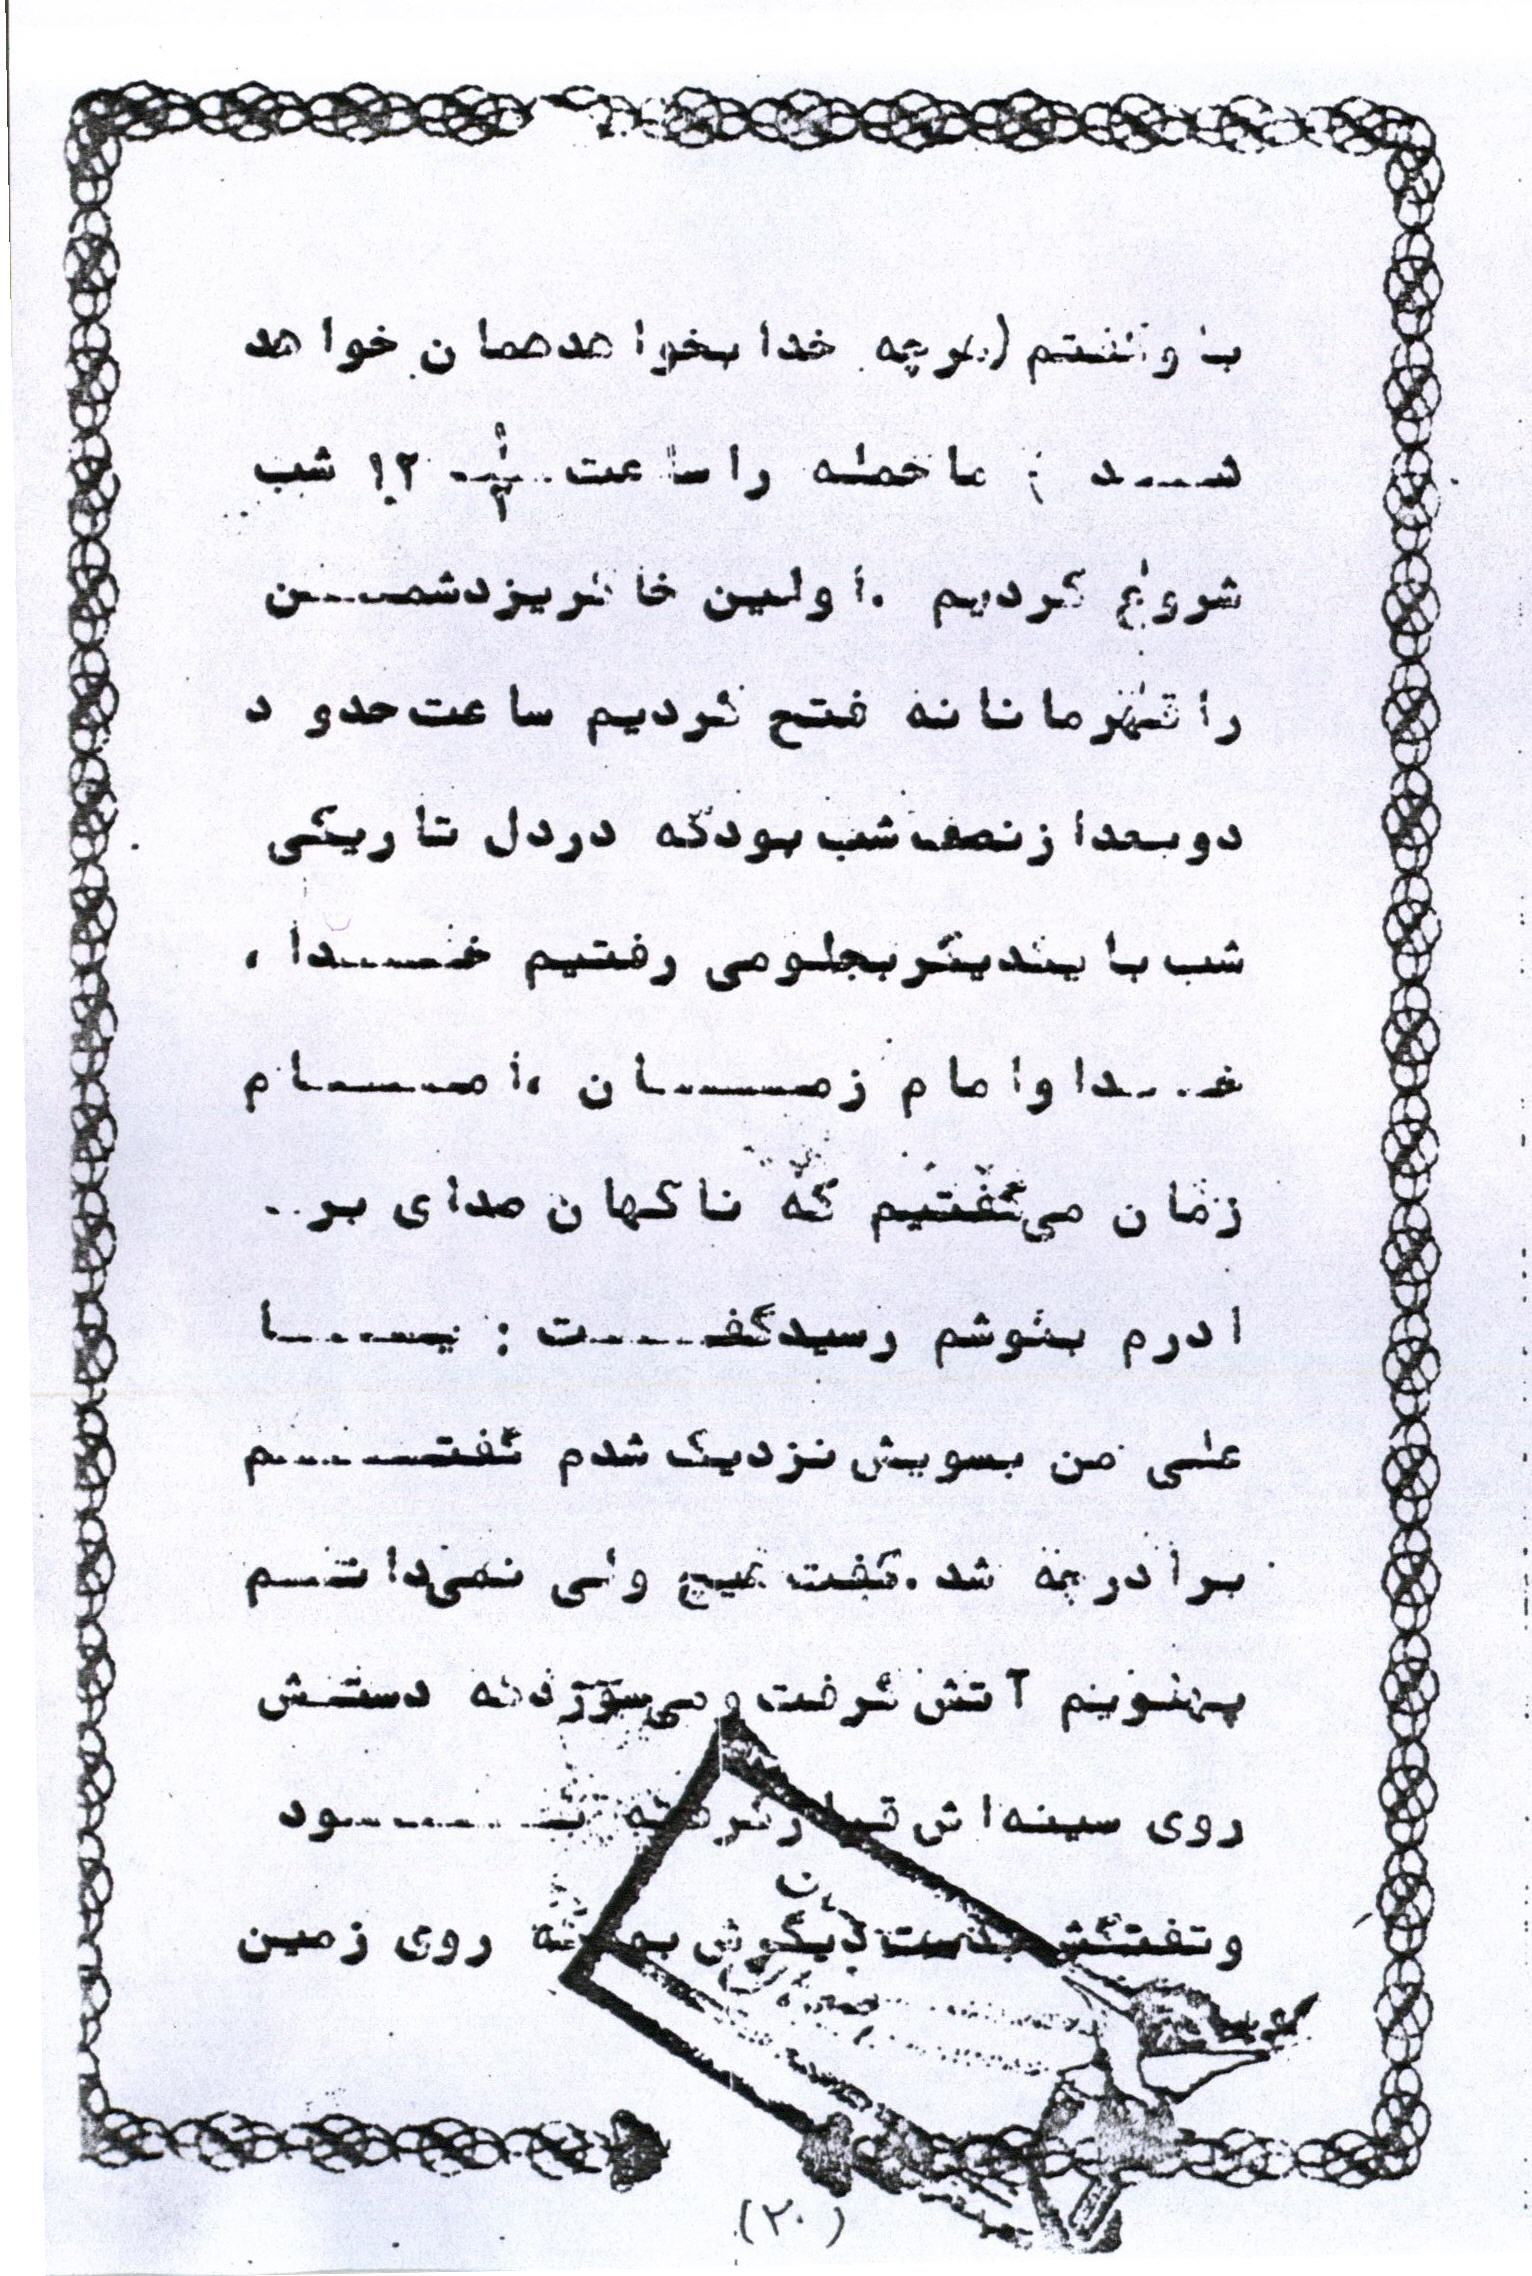 باو گفتم (هرچه خدا بخواهد همان خواهد
شد : ما حمله را ساعت ۱۲ شب
شروع کردیم . اولین خاکریز دشمن
را قهرمانانه فتح کردیم ساعت حدود
دو بعد از نصف شب بود که در دل تاریکی
شب با یکدیگر بجلو می رفتیم خدا ،
خدا و امام زمان ، امام
زمان می‌گفتیم که ناگهان صدای بر..
ادرم بگوشم رسید گفت : یا
علی من بسویش نزدیک شدم گفتم
برادر چه شد . گفت هیچ ولی نمی‌دانم
پهلویم آتش گرفت و می‌سوزد که دستش
روی سینه‌اش قرار گرفته بود
و تفنگش بدست دیگرش بود که روی زمین
(۲۰)